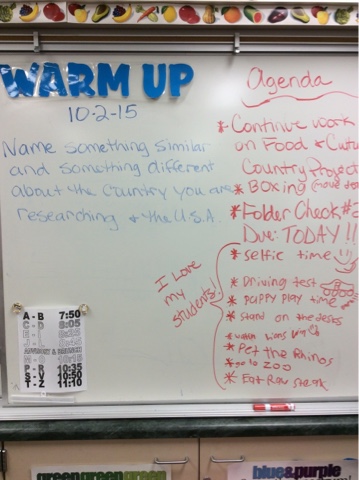 WARM UP
10-2-15
Name something similar
and something different
about the country you are
researching + the U.S.A.
Agenda
* Continue work
on Food & Cultu
Country Project
* BOXing (move dow
* Folder Check #2
Due: TODAY!!
* selfie time
I love
my
students!
* Driving test
* puppy play time
* stand on the desks
* watch lions
* Pet the Rhinos
* go to zoo
* Eat Raw steak
A - B 7:50
C - D 8:05
E - I 8:35
J - L 8:45
M - O 10:15
P - R 10:35
S - V 10:50
T - Z 11:10
greengreengreen
blue&purple